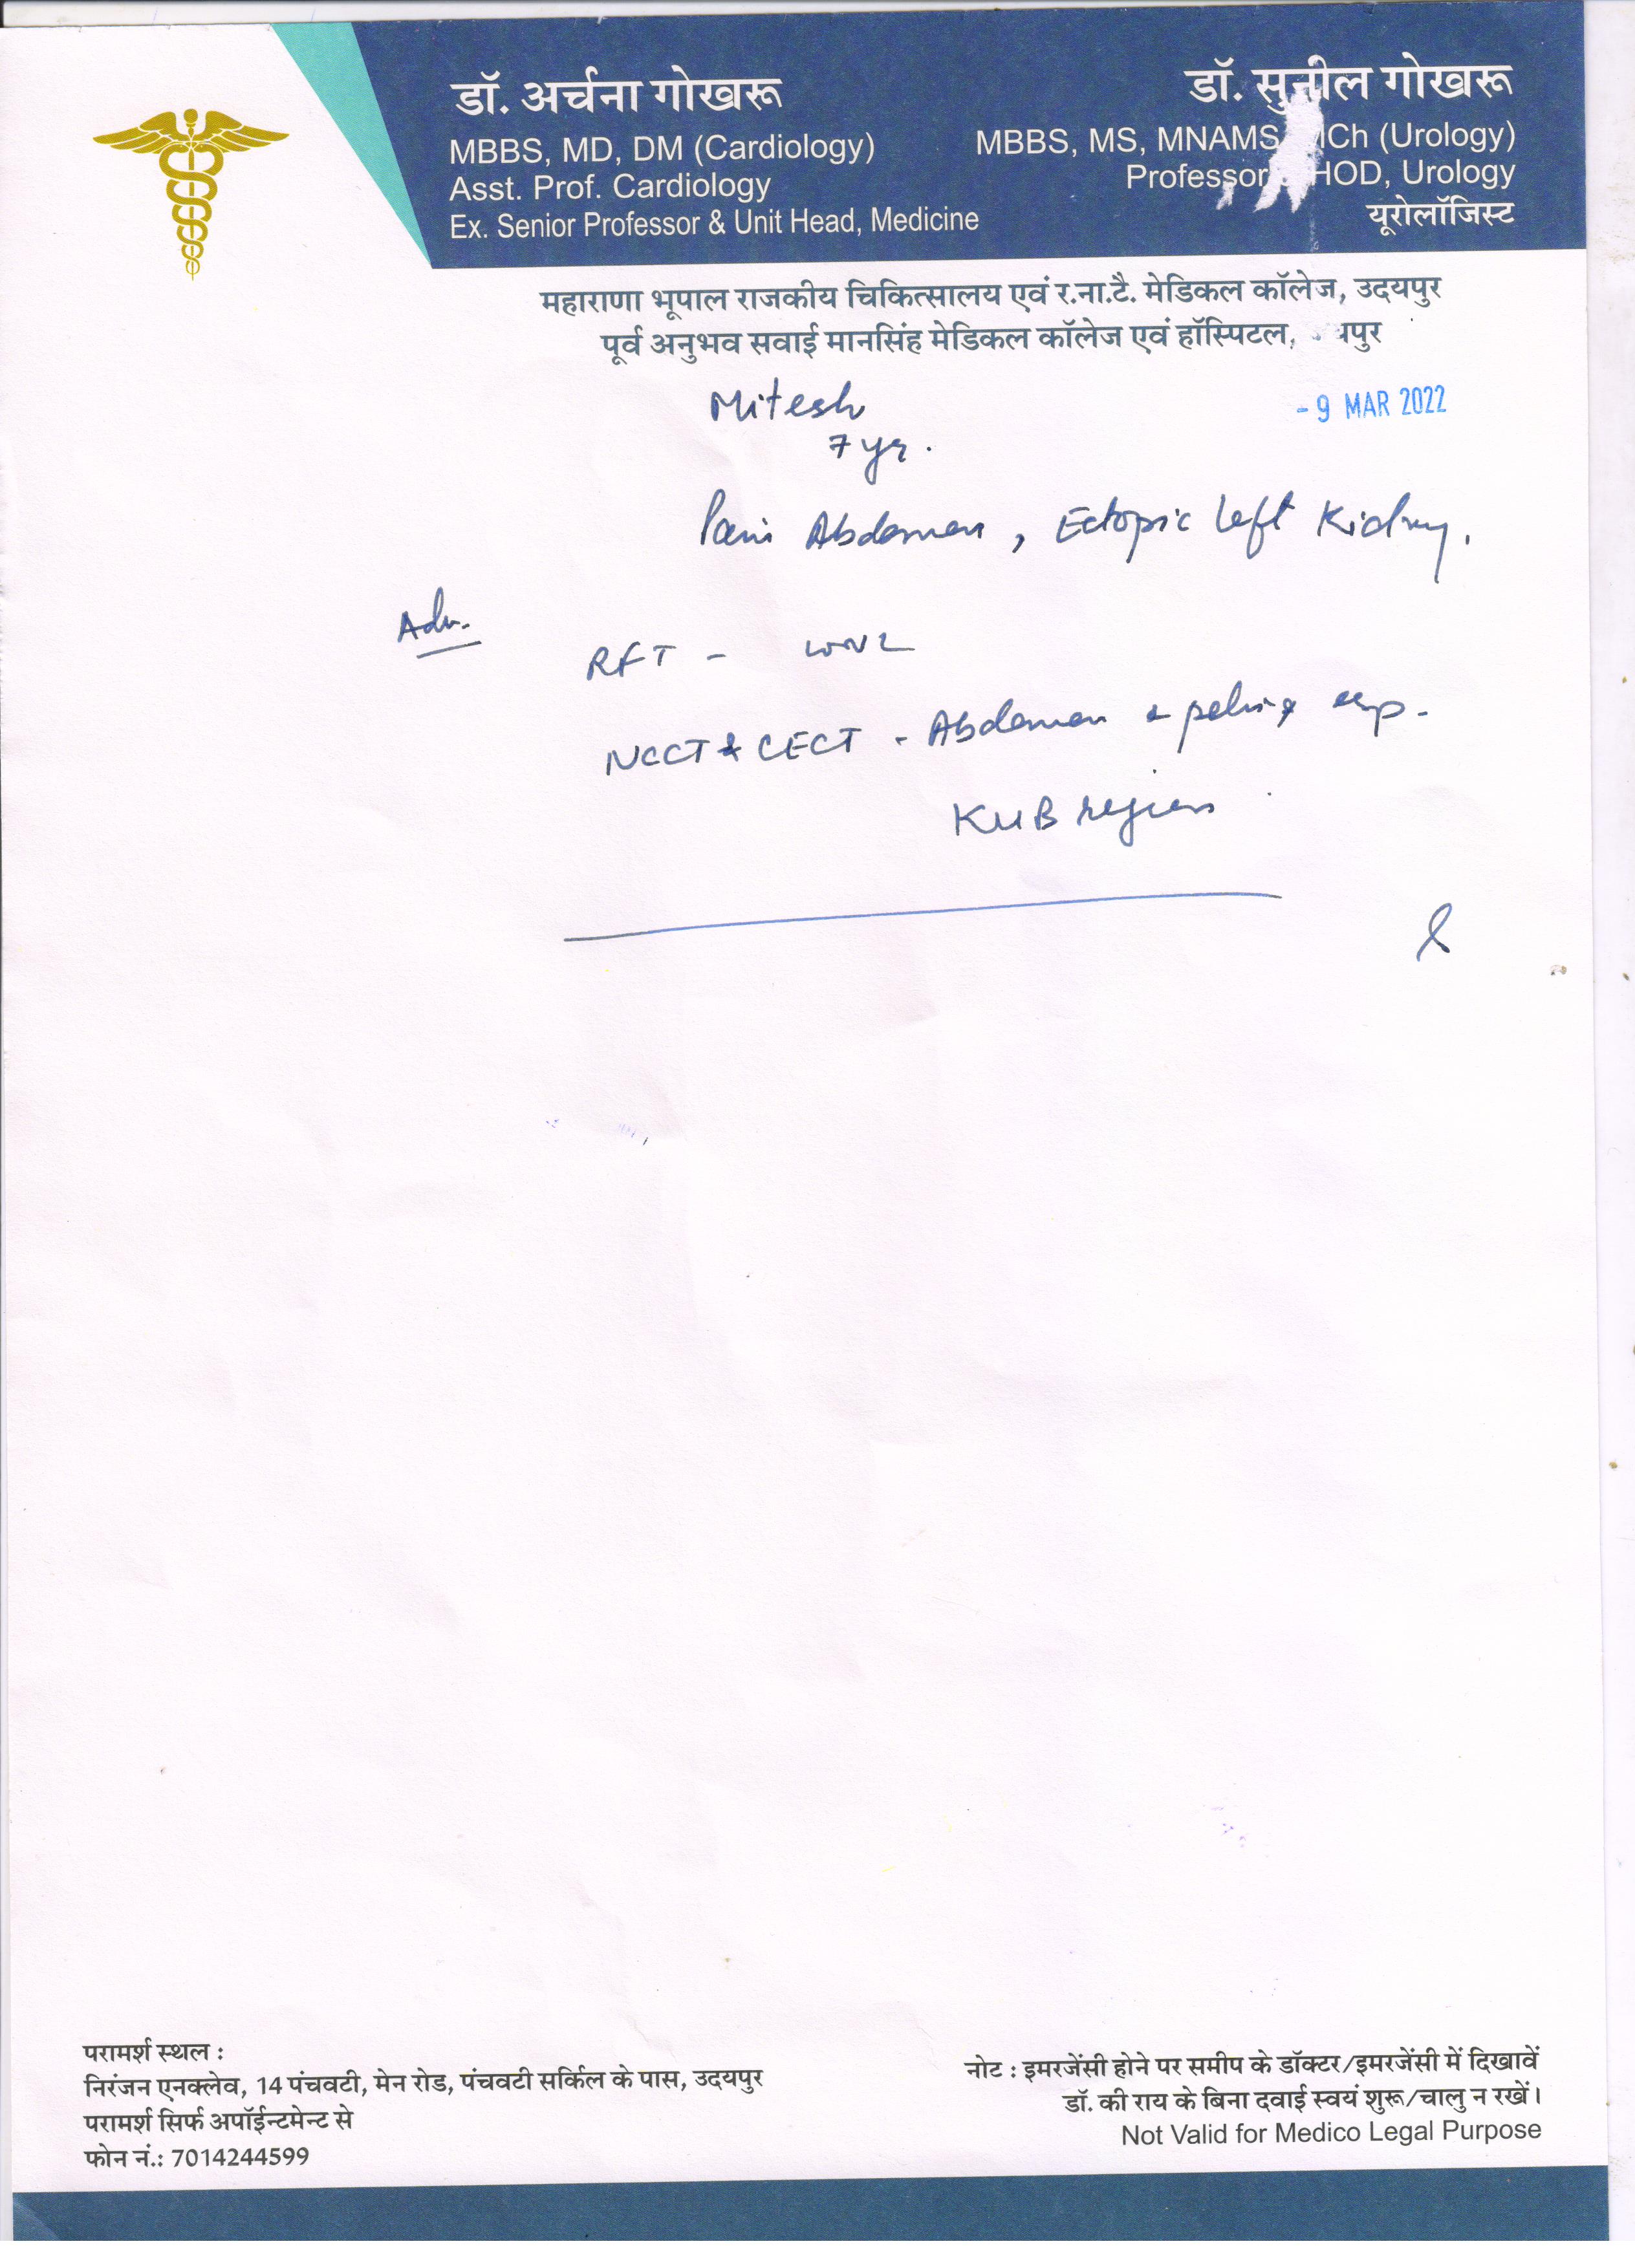 डॉ. अर्चना गोखरू
MBBS, MD, DM (Cardiology)
Asst. Prof. Cardiology
Ex. Senior Professor & Unit Head, Medicine
डॉ. सुनील गोखरू
MBBS, MS, MNAMS, MCh (Urology)
Professor HOD, Urology
यूरोलॉजिस्ट
महाराणा भूपाल राजकीय चिकित्सालय एवं र.ना.टै. मेडिकल कॉलेज, उदयपुर
पूर्व अनुभव सवाई मानसिंह मेडिकल कॉलेज एवं हॉस्पिटल,
Mitesh
- 9 MAR 2022
7 yr.
Pain Abdomen, Ectopic Left Kidney.
Adv.
RFT - WNL
NCCT & CECT - Abdomen & pelvis
KUB region
परामर्श स्थल :
निरंजन एनक्लेव, 14 पंचवटी, मेन रोड, पंचवटी सर्किल के पास, उदयपुर
परामर्श सिर्फ अपॉईन्टमेन्ट से
फोन नं.: 7014244599
नोट : इमरजेंसी होने पर समीप के डॉक्टर/इमरजेंसी में दिखावें
डॉ. की राय के बिना दवाई स्वयं शुरू/चालु न रखें।
Not Valid for Medico Legal Purpose